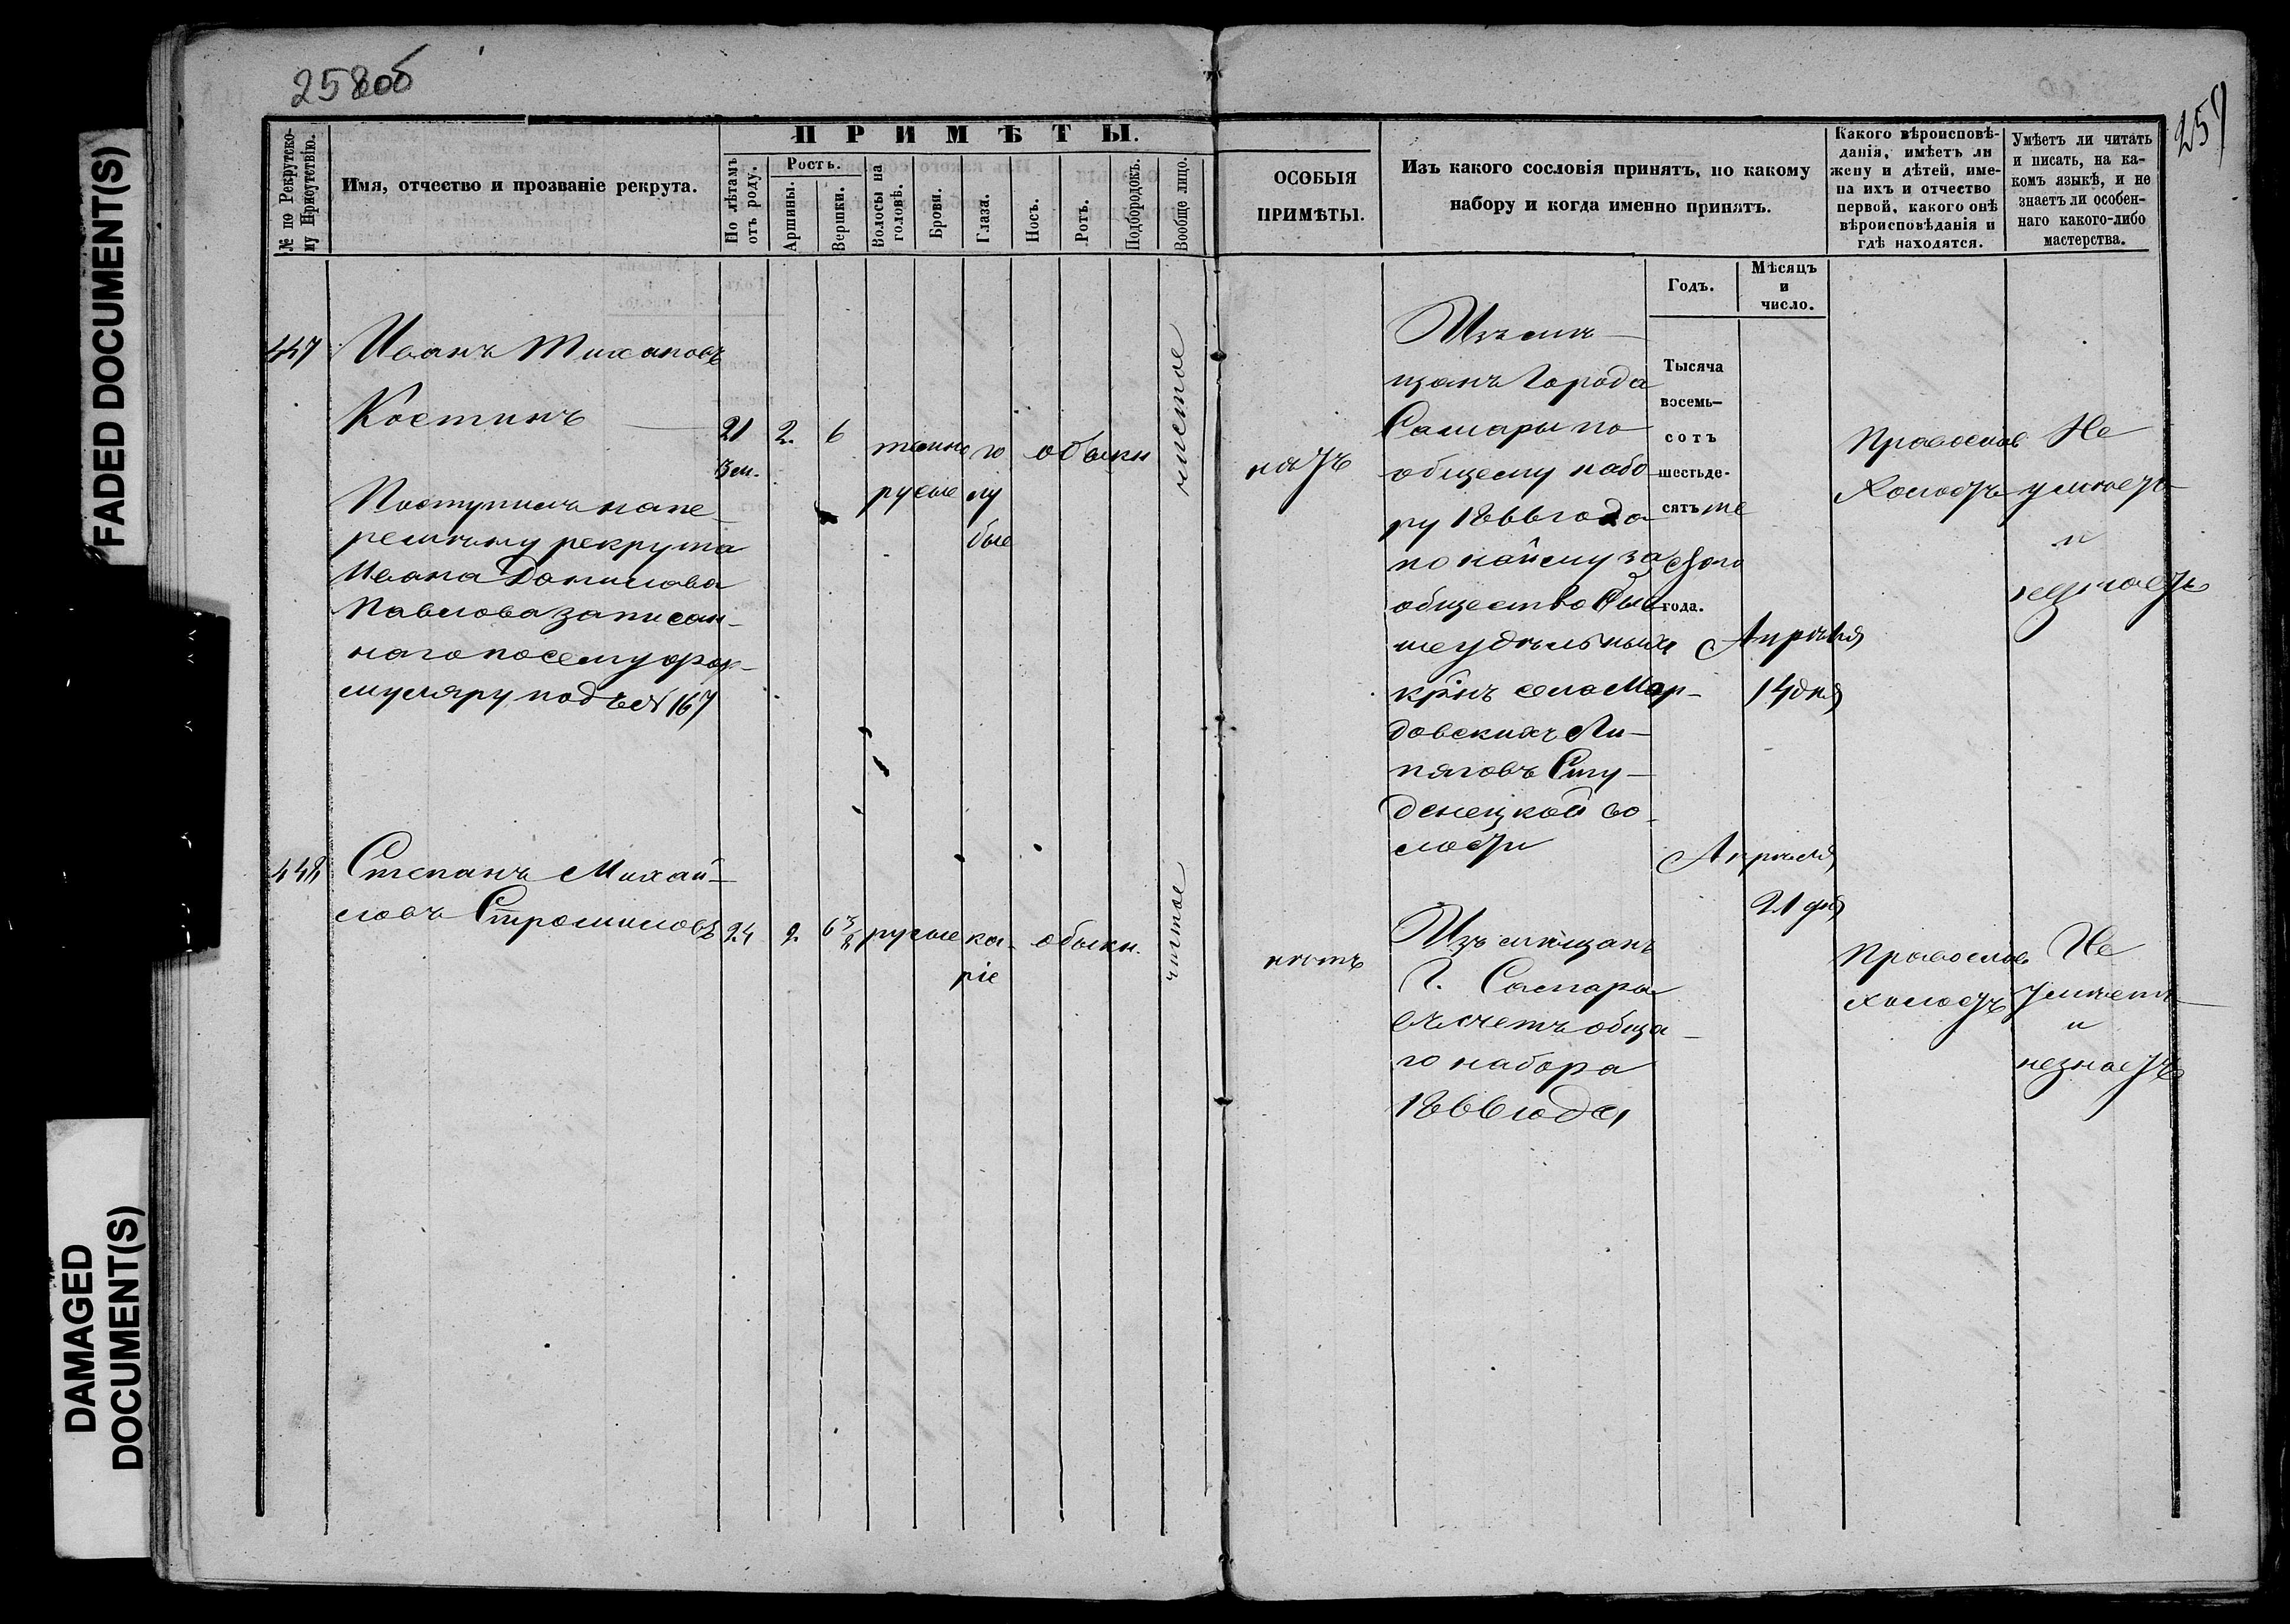 FADED DOCUMENT(S)
DAMAGED
DOCUMENT(S)
258об
259
№ по Рекрутско-
му Присутствію.
Имя, отчество и прозваніе рекрута.
ПРИМѢТЫ.
По лѣтамъ
отъ роду.
Ростъ.
Аршины.
Вершки.
Волосы на
головѣ.
Брови.
Глаза.
Носъ.
Ротъ.
Подбородокъ.
Вообще лицо.
ОСОБЫЯ
ПРИМѢТЫ.
Изъ какого сословія принятъ, по какому
набору и когда именно принятъ.
Какого вѣроисповѣ-
данія, имѣетъ ли
жену и дѣтей, име-
на ихъ и отчество
первой, какого онѣ
вѣроисповѣданія и
гдѣ находятся.
Умѣетъ ли читать
и писать, на ка-
комъ языкѣ, и не
знаетъ ли особен-
наго какого-либо
мастерства.
Годъ.
Мѣсяцъ
и
число.
447
Иванъ Тихановъ
Костинъ
Поступилъ напе-
ремѣну рекрута
Ивана Данилова
Павлова записан-
наго посему фор-
муляру подъ № 167
21
3 м.
2.
6
темно
русые
го
лу
бые
обыкн
чистое
нѣтъ
Изъ мѣ-
щанъ Города
Самары по
общему набо
ру 1866 года
по найму за
общество быв
ше удѣльныхъ
крнъ села Мор-
довскихъ Ли-
пяговъ Сту-
денецкой во-
лости
Тысяча
восемь-
сотъ
шестьде-
сятъ ше
стого
года.
Апрѣля
14 дня
Православ
Холостъ
Не
умѣетъ
и
незнаетъ
448
Степанъ Михай-
ловъ Стромиловъ
24
2.
6 3/8
русые
ка-
ріе
обыкн.
чистое
нѣтъ
Изъ мѣщанъ
Г. Самары
въ счетъ обща-
го набора
1866 года
Апрѣля
21 дня
Православ
холостъ
Не
умѣетъ
и
незнаетъ